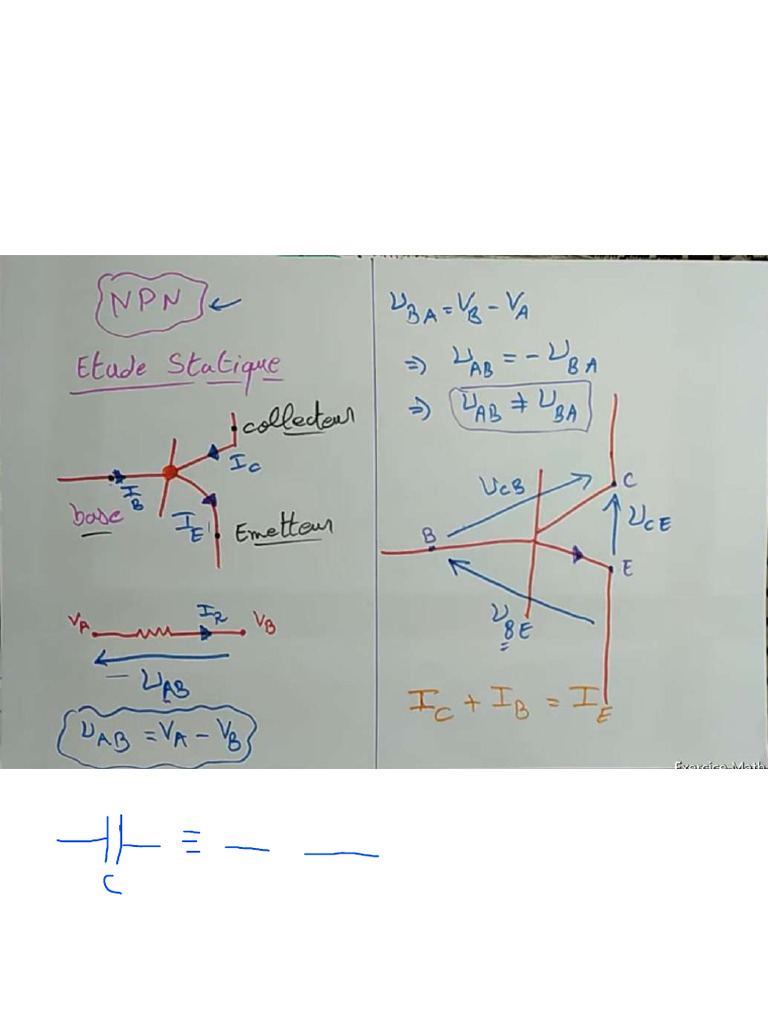 NPN
Etude Statique
collecteur
I_C
I_B
base
I_E
Emetteur
V_A
I_R
V_B
U_AB
U_AB = V_A - V_B
U_BA = V_B - V_A
=> U_AB = - U_BA
=> U_AB ≠ U_BA
C
U_CB
U_CE
B
E
U_BE
I_C + I_B = I_E
Exercice-Math
C